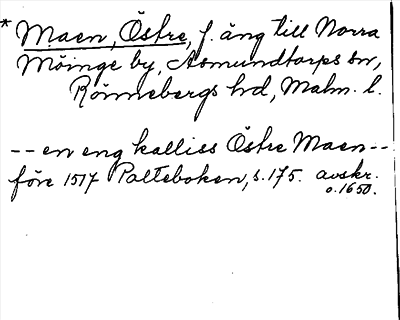 * Maen, Östre, f. äng till Norra
Möinge by, Asmundtorps sn,
Rönnebergs hd, Malm. l.
-- en eng kalliss Östre Maen --
före 1517 Palteboken, s. 175. avskr.
o. 1650.